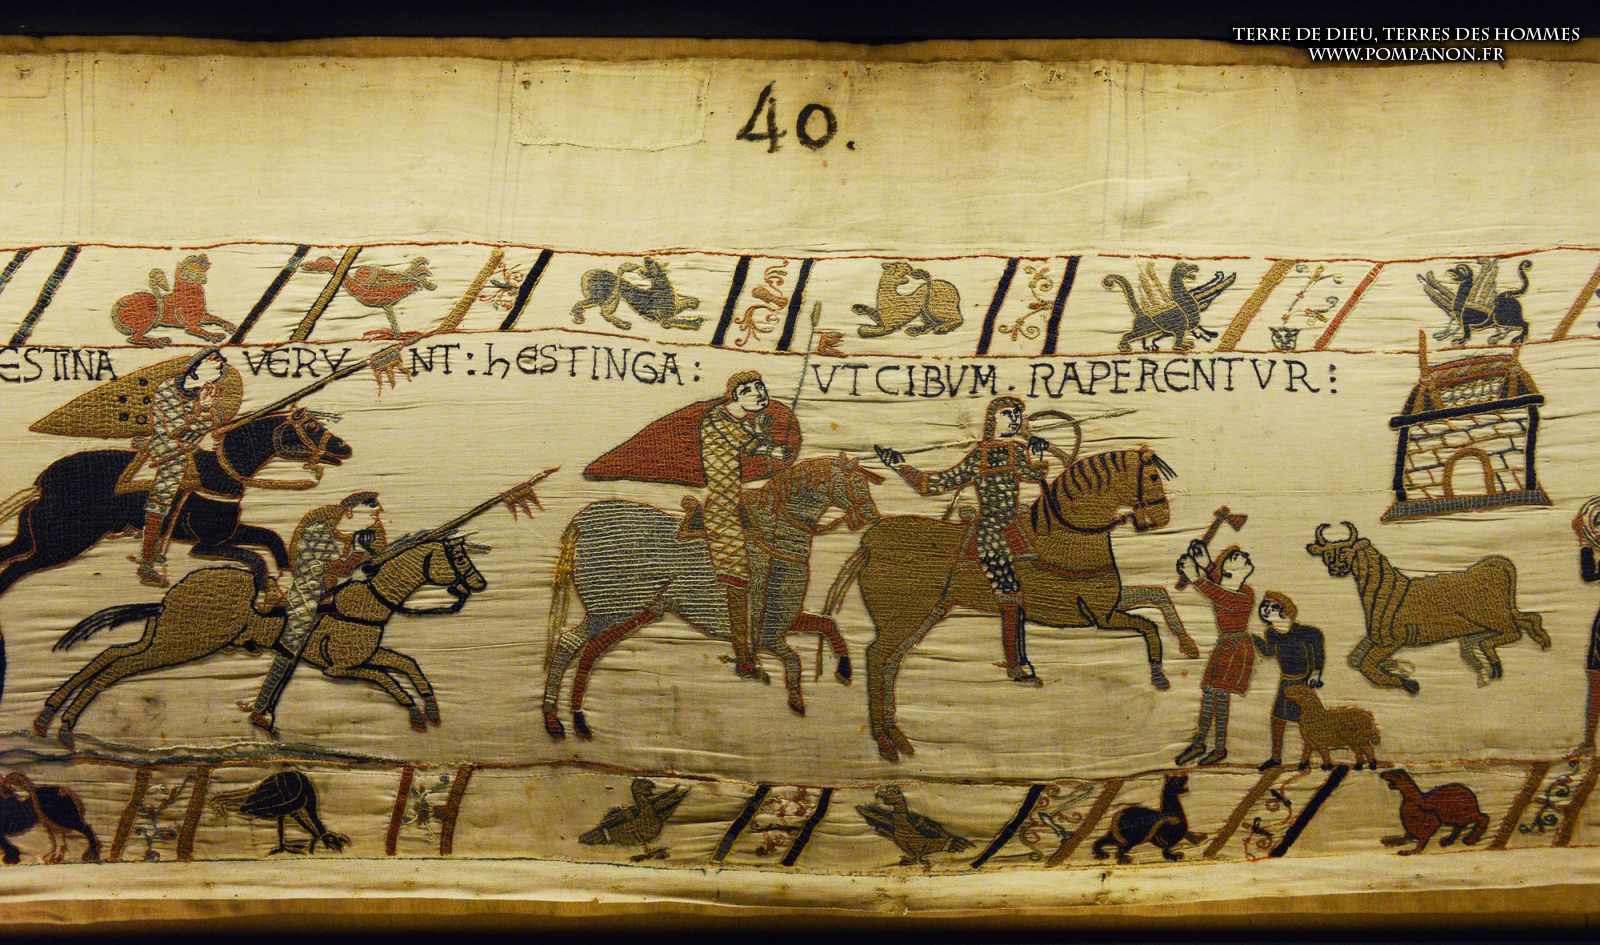 TERRE DE DIEU, TERRES DES HOMMES
WWW.POMPANON.FR
40.
ESTINA VERV NT : hESTINGA : VT CIBVM . RAPERENTVR :